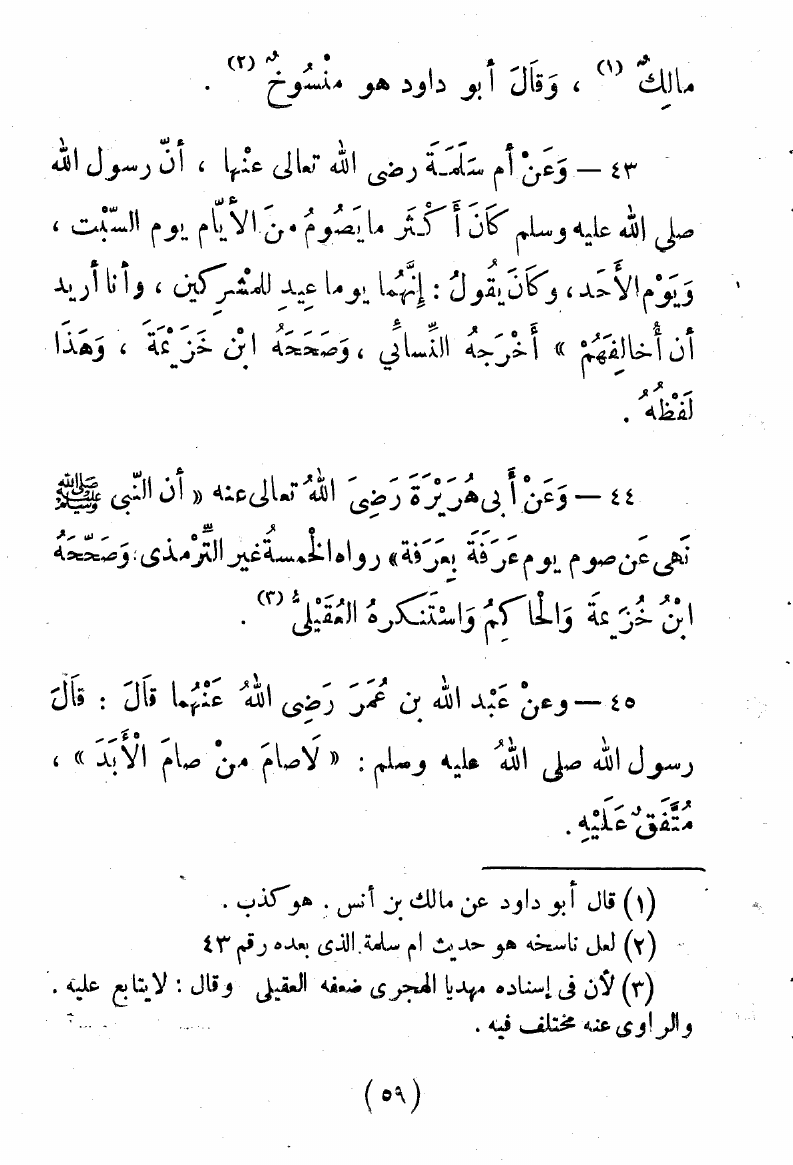 مالِكٌ (١) ، وَقَالَ أبو داود هو منْسُوخٌ (٢) .
٤٣ — وَعَنْ أم سَلَمَةَ رضى الله تعالى عنْها ، أنّ رسول الله
صلى الله عليه وسلم كَانَ أَكْثَر ما يَصُومُ منَ الأيّام يوم السّبْت ،
وَيَوْم الأَحَد، وكَانَ يقُولُ : إنَّهُما يوما عِيدِ للمْشرِكين ، وأنا أريد
أن أُخالِفَهُمْ » أَخْرَجهُ النِّسائي ، وَصَحَحَهُ ابْن خَزَيْمَةَ ، وَهَذَا
لَفْظُهُ .
٤٤ — وَعَنْ أَبى هُرَيْرَةَ رَضِىَ اللهُ تعالى عنه « أن النّبى ﷺ
نَهى عَن صوم يوم عَرَفَةَ بِعَرَفة » رواه الخْمسةُ غير التِّرْمذى، وَصَحّحَهُ
ابْنُ خُزَيمةَ وَالْحاكِمُ وَاسْتَنكرهُ العُقَيْلىُّ (٣) .
٤٥ — وعنْ عَبْد الله بن عُمَرَ رَضِى اللهُ عَنْهُما قالَ : قالَ
رسول الله صلى اللهُ عليه وسلم : « لَاصامَ منْ صامَ الْأَبَدَ » ،
مُتَّفَقٌ عَلَيْهِ .
(١) قال أبو داود عن مالك بن أنس . هو كذب .
(٢) لعل ناسخه هو حديث ام سلمة الذى بعده رقم ٤٣
(٣) لأن فى إسناده مهديا الهجرى ضعفه العقيلى وقال : لايتابع عليه .
والراوى عنه مختلف فيه .
(٥٩)